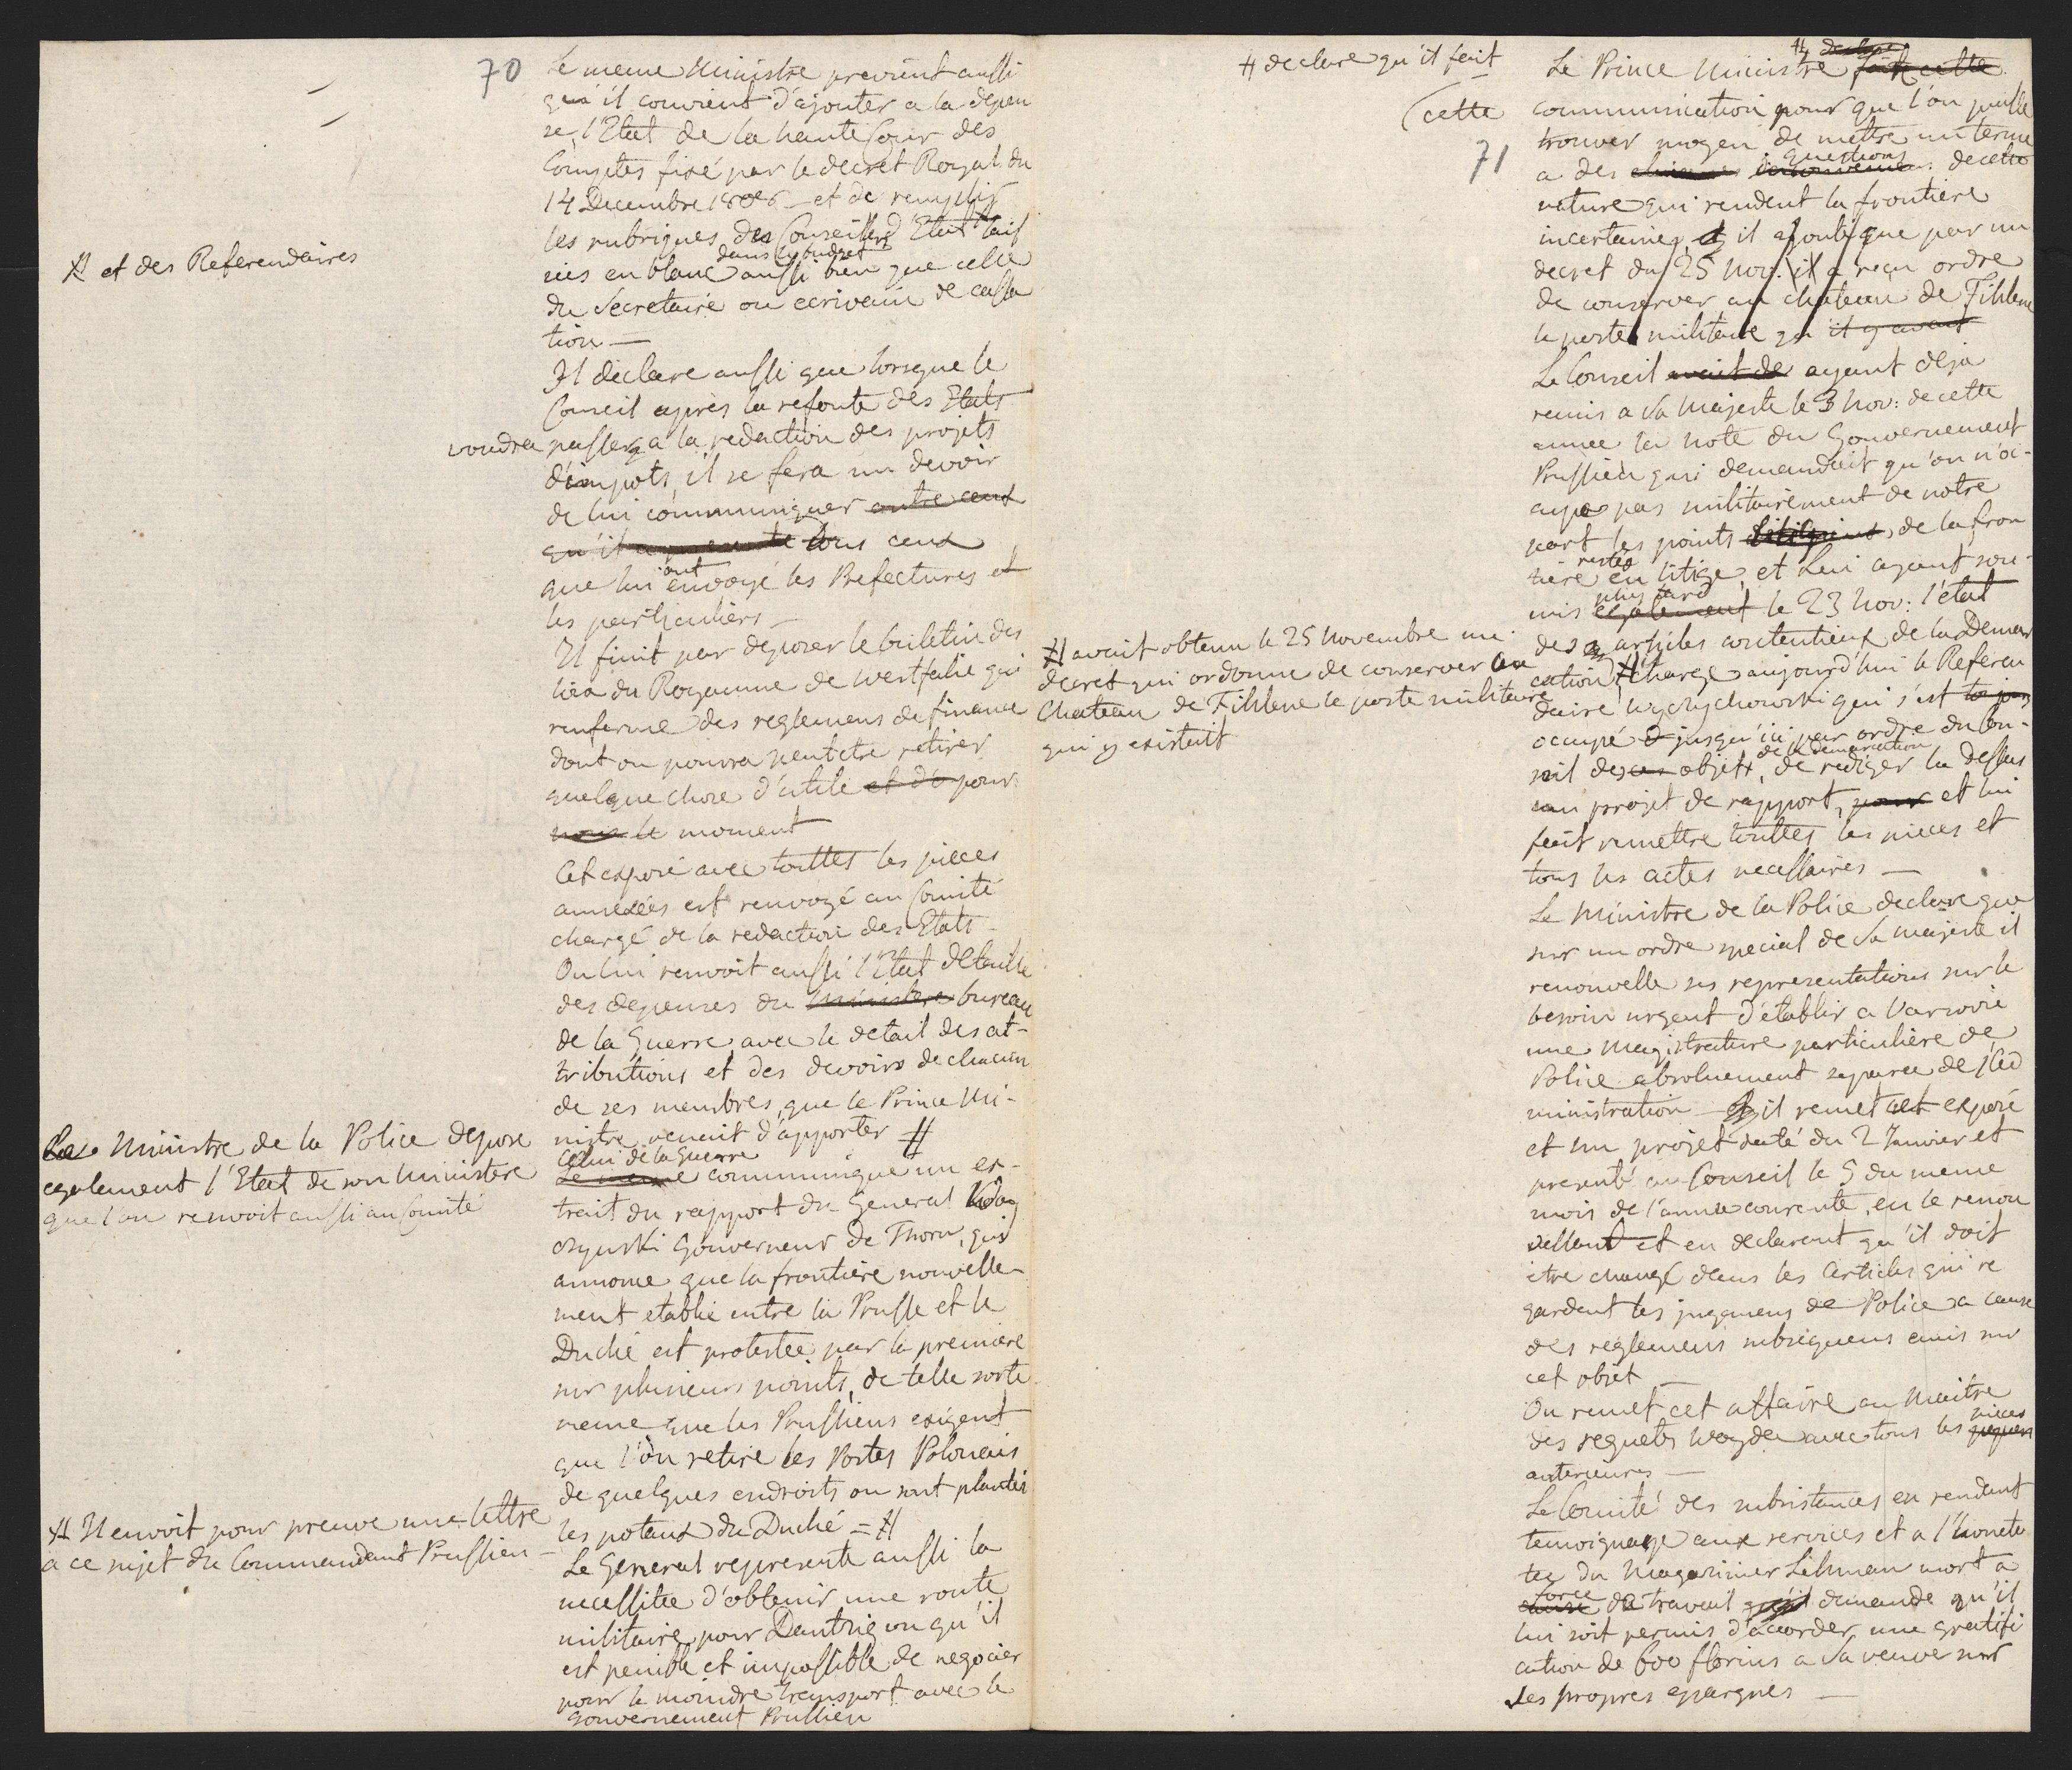 70
Le meme Ministre previent aussi
qu'il convient d'ajouter a la depen
se, l'Etat de la haute Cour des
Comptes fixé par le decret Royal du
14 Decembre 1808 – et de remplir
les rubriques des Conseillers d'Etat laif
# et des Referendaires
dans le budget
sées en blanc aussi bien que celle
du Secretaire ou ecrivain de cassa
tion —
Il declare aussi que lorsque le
Conseil après la refonte des Etats
voudra passer a la redaction des projets
d'impots, il se fera un devoir
de lui communiquer entre ceux
qu'il a presenté tous ceux
que lui ont envoyé les Prefectures et
les particuliers —
Il finit par deposer le buletin des
loix du Royaume de Westfalie qui
renferme des reglemens de finance
dont on pourra peutetre retirer
quelque chose d'utile et de pour
nous le moment
Cet exposé avec touttes les pieces
annexées est renvoyé au Comité
chargé de la redaction des Etats –
On lui renvoit aussi l'Etat detaillé
des depenses du Ministere bureau
de la Guerre avec le detail des at-
tributions et des devoirs de chacun
de ses membres, que le Prince Mi-
nistre venait d'apporter #
Le Ministre de la Police depose
egalement l'Etat de son Ministere
que l'on renvoit aussi au Comité
Celui de la Guerre
Le meme communique un ex-
trait du rapport du General
Gouverneur de Thorn, qui
annonce que la frontière nouvelle-
ment etablie entre la Prusse et le
Duché est protestée par la premiere
sur plusieurs points, de telle sorte
meme que les Prussiens exigent
que l'on retire les Postes Polonais
de quelques endroits ou sont plantés
les poteaux du Duché = #
# Il envoit pour preuve une lettre
a ce sujet du Commandant Prussien –
Le General represente aussi la
necessitée d'obtenir une route
militaire pour Dantzig vu qu'il
est penible et impossible de negocier
pour le moindre transport avec le
Gouvernement Prussien
# declare qu'il fait
# declare
Le Prince Ministre fait cette
(cette communication pour que l'on puisse
trouver moyen de mettre un terme
71
questions
a des de cette
nature qui rendent la frontiere
incertaine, et il ajoute que par un
decret du 25 Nov. il a reçu ordre
de conserver au chateau de Filehne
le poste militaire qu'il y avait
Le Conseil avait de ayant deja
remis a Sa Majesté le 3 Nov: de cette
année la note du Gouvernement
Prussien qui demandait qu'on n'oc-
cupe pas militairement de notre
part les points litigieux de la fron
restés
tiere en litige, et Lui ayant sou-
plus tard
mis egalement le 23 Nov: l'état
des articles contentieux de la Demar
cation # charge aujourd'hui le Referen
# avait obtenu le 25 Novembre un
decret qui ordonne de conserver au
Chateau de Filehne le poste militaire
qui y existait
daire Wychychowski qui s'est toujours
occupé jusqu'ici par ordre du Con-
de la demarcation
seil des ces objets, de rediger la dessus
un projet de rapport, pour et lui
fait remettre touttes les pieces et
tous les actes necessaires —
Le Ministre de la Police declare que
sur un ordre special de Sa Majesté il
renouvelle ses representations sur le
besoin urgent d'établir a Varsovie
une Magistrature particulière de
Police absoluement separée de l'ad
ministration – Il remet cet exposé
et un projet daté du 2 Janvier et
presenté au Conseil le 5 du meme
mois de l'année courente, en le renou
vellant et en declarant qu'il doit
etre changé dans les Articles qui re
gardent les jugemens de Police a cause
des reglemens subsequens emis sur
cet objet —
On remet cet affaire au Maitre
pieces
des requetes Woyde avec tous les papiers
anterieures —
Le Comité des subsistances en rendant
temoignage aux services et a l'honete
té du Magasinier Lehman mort a
force
cause de travail qu'il demande qu'il
lui soit permis d'accorder une gratifi
cation de 600 florins a sa veuve sur
ses propres epargnes —